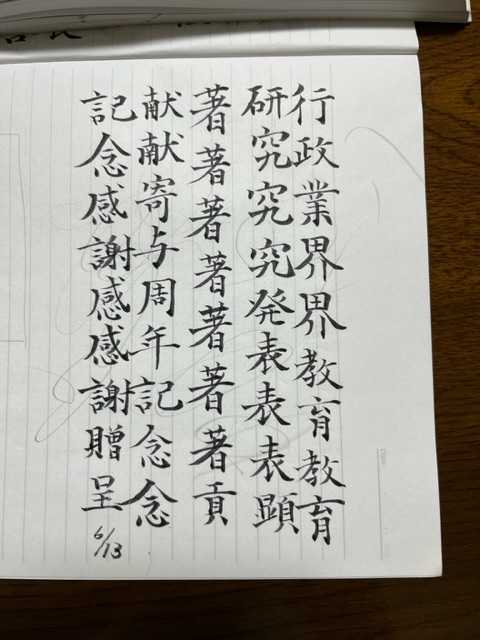 行政業界界教育教育
研究究究発表表表顕
著著著著著著著貢
献献寄与周年記念念
記念感謝感感謝贈呈
6/13